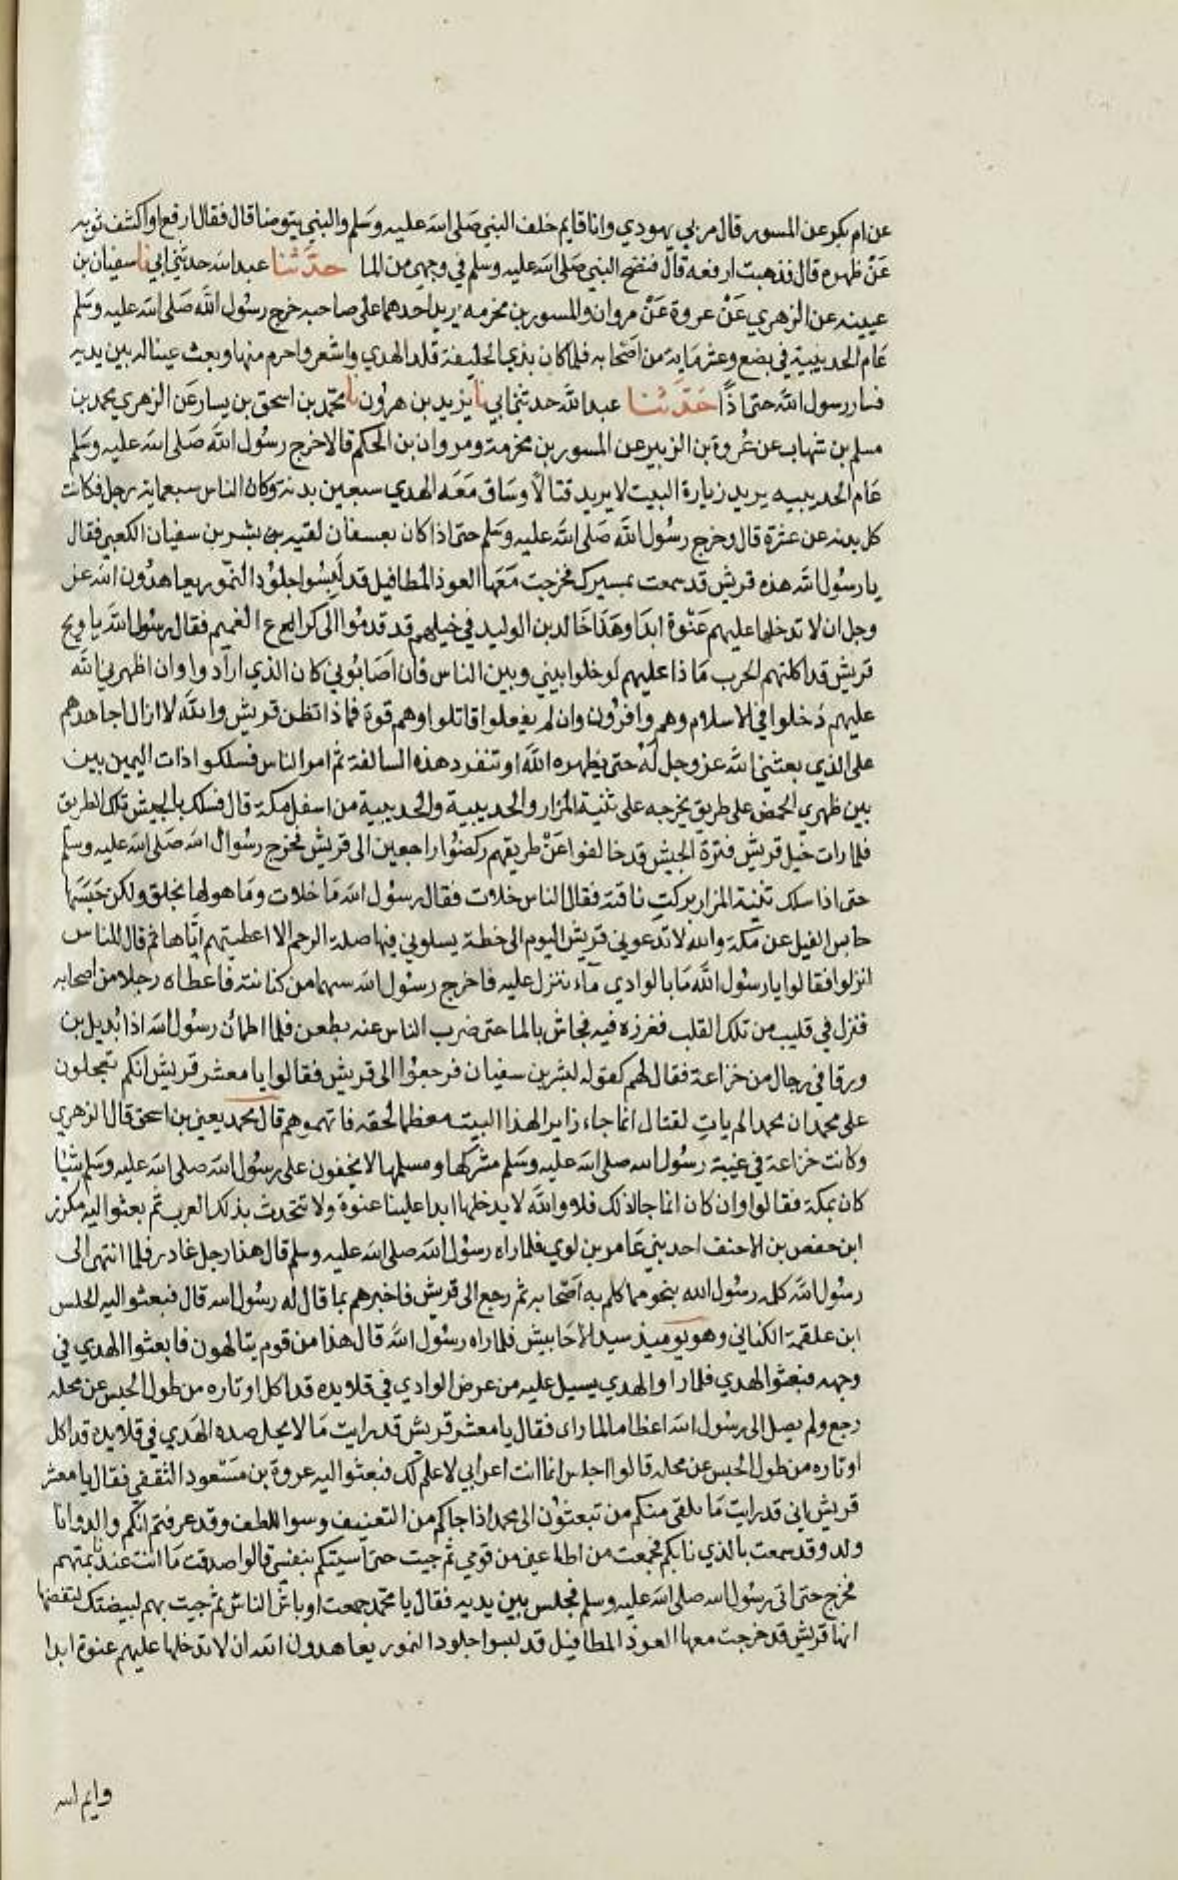 عن ام بكر عن المسور قال مر بي يهودي وانا قايم خلف النبي صلى الله عليه وسلم والنبي يتوضا قال فقال ارفع او اكشف ثوبه
عن ظهره قال فذهبت ارفعه قال فنضح النبي صلى الله عليه وسلم في وجهي من الما حدثنا عبد الله حدثني ابي نا سفيان بن
عيينه عن الزهري عن عروة عن مروان والمسور بن مخرمه يزيد احدهما على صاحبه خرج رسول الله صلى الله عليه وسلم
عام الحديبية في بضع وعشر ماية من اصحابه فلما كان بذي الحليفة قلد الهدي واشعر واحرم منها وبعث عينا له بين يديه
فسار رسول الله حتى اذا حدثنا عبد الله حدثني ابي نا يزيد بن هرون نا محمد بن اسحق بن يسار عن الزهري محمد بن
مسلم بن شهاب عن عروة بن الزبير عن المسور بن مخرمة ومروان بن الحكم قالا خرج رسول الله صلى الله عليه وسلم
عام الحديبيه يريد زيارة البيت لا يريد قتالا وساق معه الهدي سبعين بدنة وكان الناس سبعماية رجل فكانت
كل بدنه عن عشرة قال وخرج رسول الله صلى الله عليه وسلم حتى اذا كان بعسفان لقيه بن بشر بن سفيان الكعبي فقال
يا رسول الله هذه قريش قد سمعت بمسيرك فخرجت معها العوذ المطافيل قد لبسوا جلود النمور يعاهدون الله عز
وجل ان لا تدخلها عليهم عنوة ابدا وهذا خالد بن الوليد في خيلهم قد قدموا الى كراع الغميم فقال رسول الله يا ويح
قريش قد اكلتهم الحرب ماذا عليهم لو خلوا بيني وبين الناس فان اصابوني كان الذي ارادوا وان اظهرني الله
عليهم دخلوا في الاسلام وهم وافرون وان لم يفعلوا قاتلوا وهم قوة فماذا تظن قريش والله لا ازال اجاهدهم
على الذي بعثني الله عز وجل له حتى يظهره الله او تنفرد هذه السالفة ثم امر الناس فسلكوا ذات اليمين بين
بين ظهري الحمض على طريق يخرجه على ثنية المرار والحديبية والحديبية من اسفل مكة قال فسلك بالجيش تلك الطريق
فلما رات خيل قريش قترة الجيش قد خالفوا عن طريقهم ركضوا راجعين الى قريش فخرج رسول الله صلى الله عليه وسلم
حتى اذا سلك ثنية المرار بركت ناقته فقال الناس خلات فقال رسول الله ما خلات وما هو لها بخلق ولكن حبسها
حابس الفيل عن مكة والله لا تدعوني قريش اليوم الى خطة يسلوني فيها صلة الرحم الا اعطيتهم اياها ثم قال للناس
انزلوا فقالوا يا رسول الله ما بالوادي ماء ننزل عليه فاخرج رسول الله سهما من كنانته فاعطاه رجلا من اصحابه
فنزل في قليب من تلك القلب فغرزه فيه فجاش بالما حتى ضرب الناس عنه بطعن فلما اطمان رسول الله اذا بديل بن
ورقا في رجال من خزاعة فقال لهم كقوله لبشر بن سفيان فرجعوا الى قريش فقالوا يا معشر قريش انكم تعجلون
على محمد ان محمدا لم يات لقتال انما جاء زايرا لهذا البيت معظما لحقه فاتهموهم قال محمد يعني بن اسحق قال الزهري
وكانت خزاعة في غيبة رسول الله صلى الله عليه وسلم مشركها ومسلمها لا يخفون على رسول الله صلى الله عليه وسلم شيئا
كان بمكة فقالوا وان كان انما جا لذلك فلا والله لا يدخلها ابدا علينا عنوة ولا تتحدث بذلك العرب ثم بعثوا اليه مكرز
ابن حفص بن الاحنف احد بني عامر بن لوي فلما راه رسول الله صلى الله عليه وسلم قال هذا رجل غادر فلما انتهى الى
رسول الله كلمه رسول الله بنحو مما كلم به اصحابه ثم رجع الى قريش فاخبرهم بما قال له رسول الله قال فبعثوا اليه الحلس
ابن علقمة الكناني وهو يوميذ سيد الاحابيش فلما راه رسول الله قال هذا من قوم يتالهون فابعثوا الهدي في
وجهه فبعثوا الهدي فلما را والهدي يسيل عليه من عرض الوادي في قلايده قد اكل اوتاره من طول الحبس عن محله
رجع ولم يصل الى رسول الله اعظاما لما راى فقال يا معشر قريش قد رايت ما لا يحل صده الهدي في قلايده قد اكل
اوتاره من طول الحبس عن محله قالوا اجلس انما انت اعرابي لا علم لك فبعثوا اليه عروة بن مسعود الثقفي فقال يا معشر
قريش اني قد رايت ما يلقى منكم من تبعثون الى محمد اذا جاكم من التعنيف وسو اللفظ وقد عرفتم انكم والد وانا
ولد وقد سمعت بالذي نابكم فجمعت من اطاعني من قومي ثم جيت حتى آسيتكم بنفسي قالوا صدقت ما انت عندنا بمتهم
فخرج حتى اتى رسول الله صلى الله عليه وسلم فجلس بين يديه فقال يا محمد جمعت اوباش الناس ثم جيت بهم لبيضتك لتفضها
انها قريش قد خرجت معها العوذ المطافيل قد لبسوا جلود النمور يعاهدون الله ان لا تدخلها عليهم عنوة ابدا
وايم الله